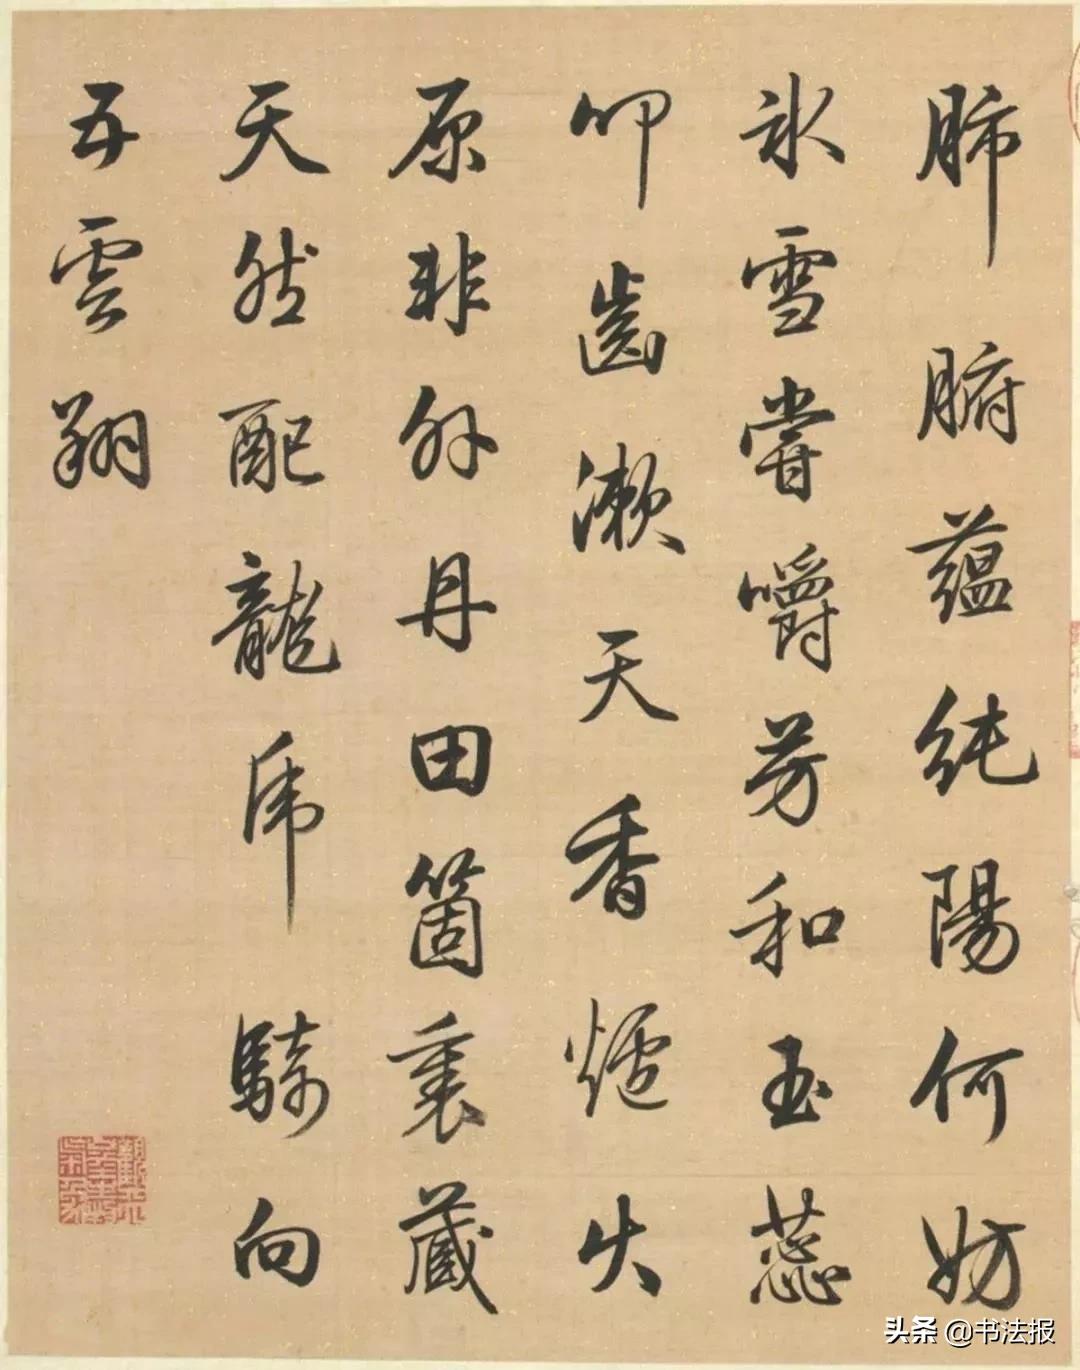 肺腑蘊純陽何妨
冰雪嘗嚼芳和玉蕊
叩齒漱天香爐火
原非外丹田箇裏藏
天然配龍虎騎向
五雲翔
头条 @书法报